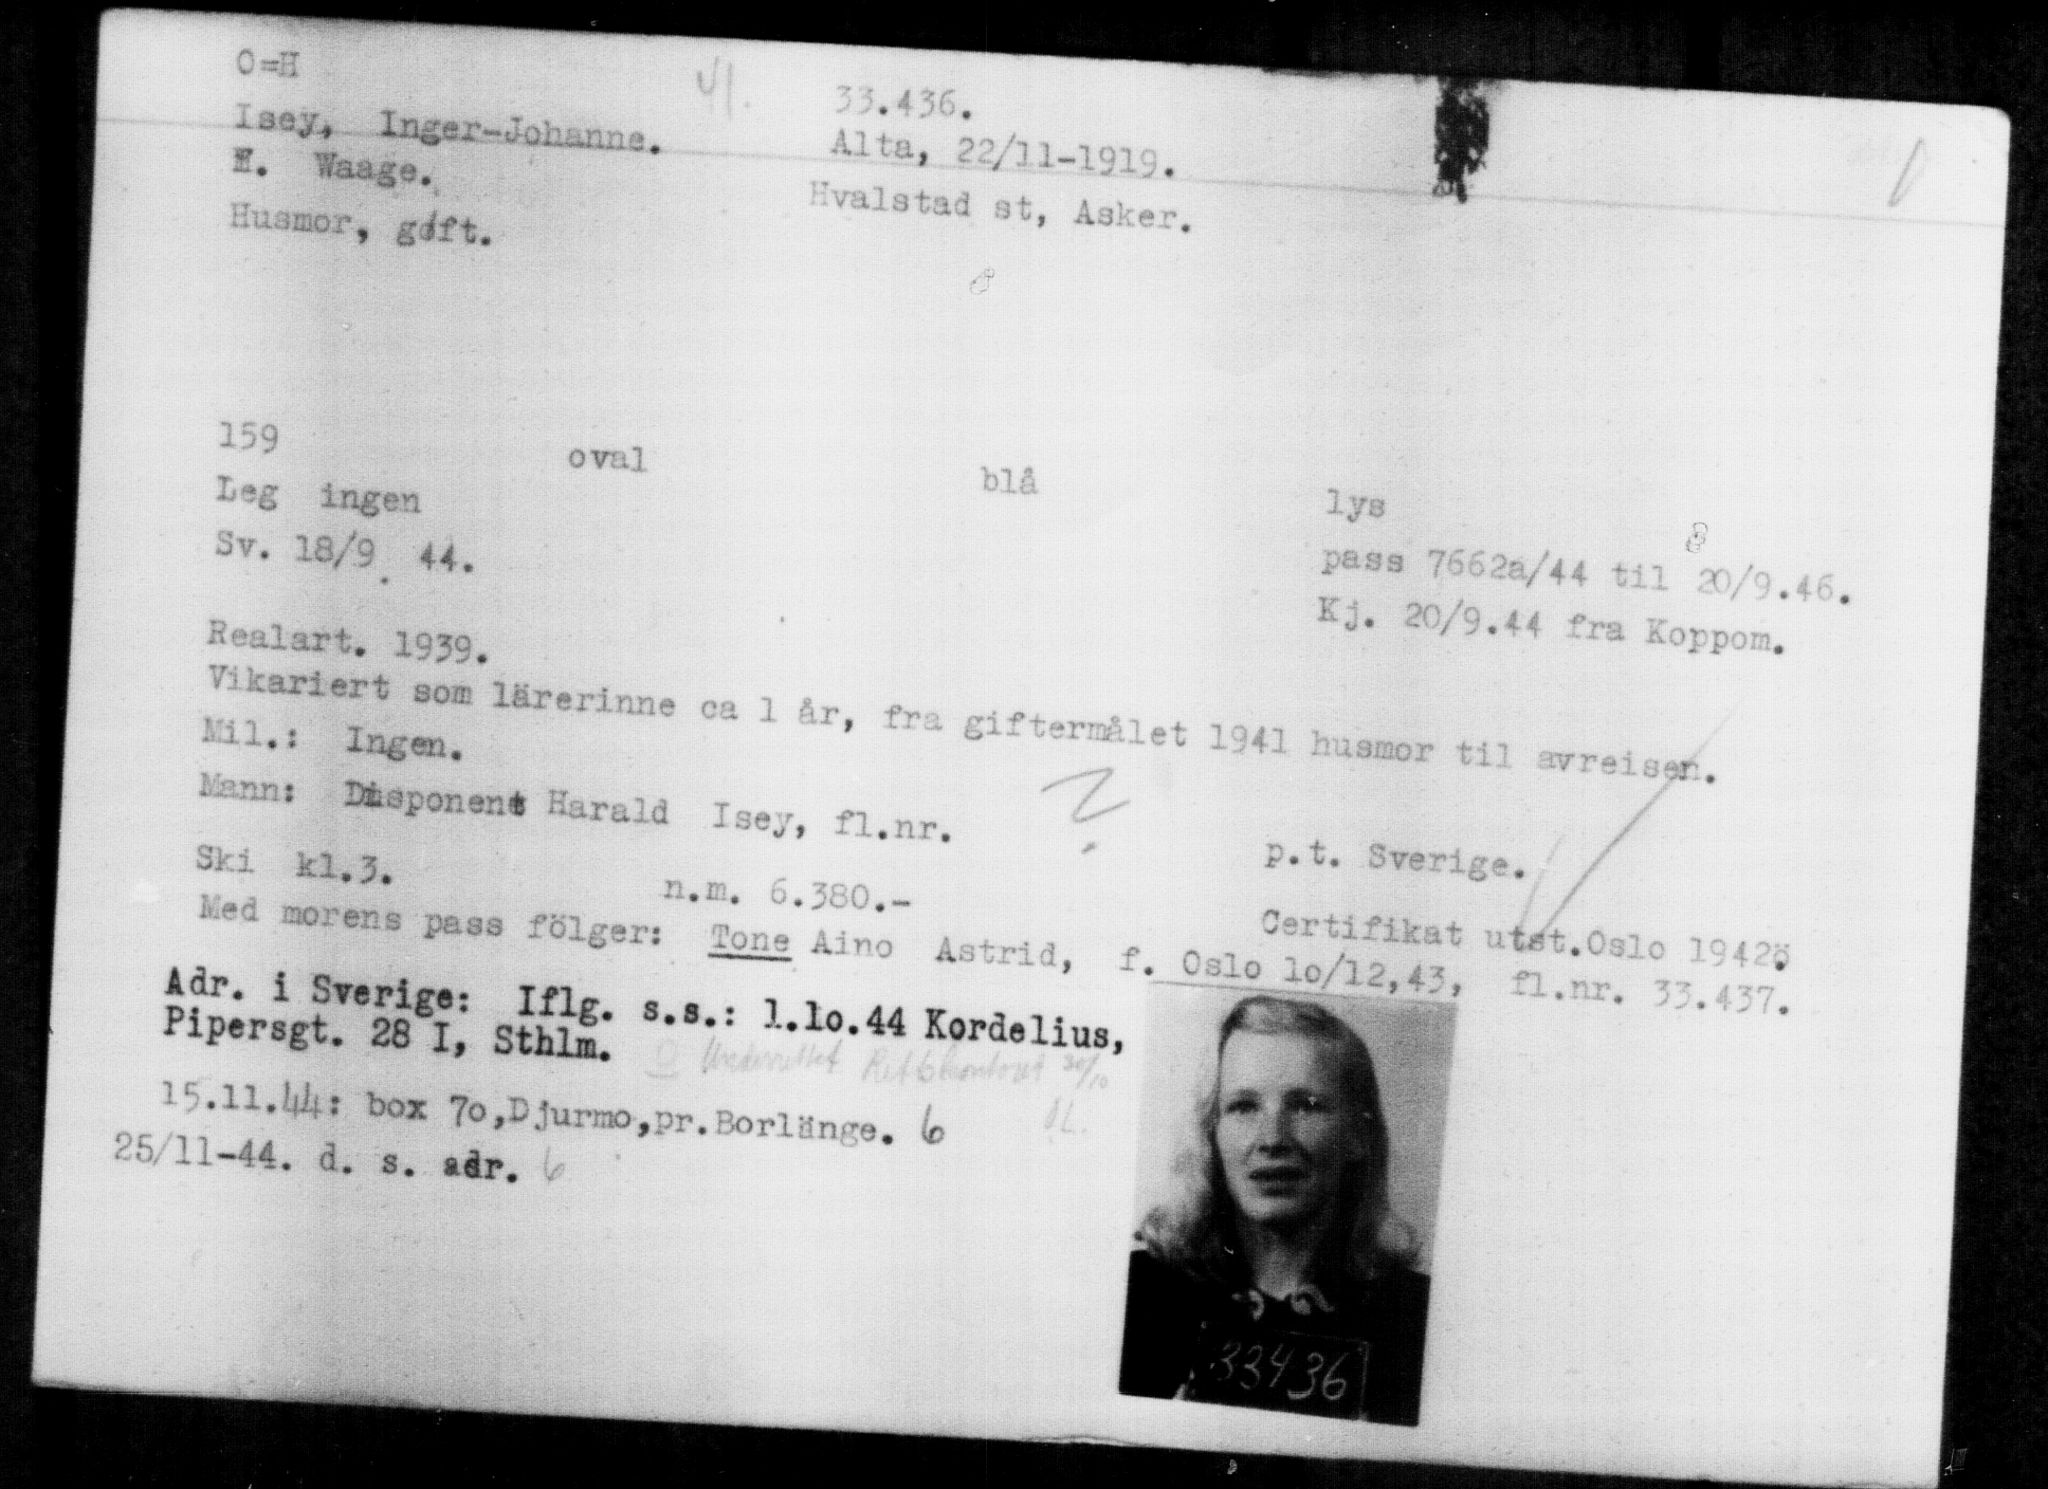 O=H
33.436.
Isey, Inger-Johanne.
Alta, 22/11-1919.
F. Waage.
Hvalstad st, Asker.
Husmor, gift.
159 oval blå lys
Leg ingen
pass 7662a/44 til 20/9.46.
Sv. 18/9 44.
Kj. 20/9.44 fra Koppom.
Realart. 1939.
Vikariert som lärerinne ca 1 år, fra giftermålet 1941 husmor til avreisen.
Mil.: Ingen.
Mann: Disponent Harald Isey, fl.nr. ?
p.t. Sverige.
Ski kl.3. n.m. 6.380.-
Certifikat utst.Oslo 1942.
Med morens pass fölger: Tone Aino Astrid, f. Oslo 10/12,43, fl.nr. 33.437.
Adr. i Sverige: Iflg. s.s.: 1.10.44 Kordelius,
Pipersgt. 28 I, Sthlm.
Underrettet 30/10
15.11.44: box 70,Djurmo,pr.Borlänge. 6
25/11-44. d. s. adr. 6
33436